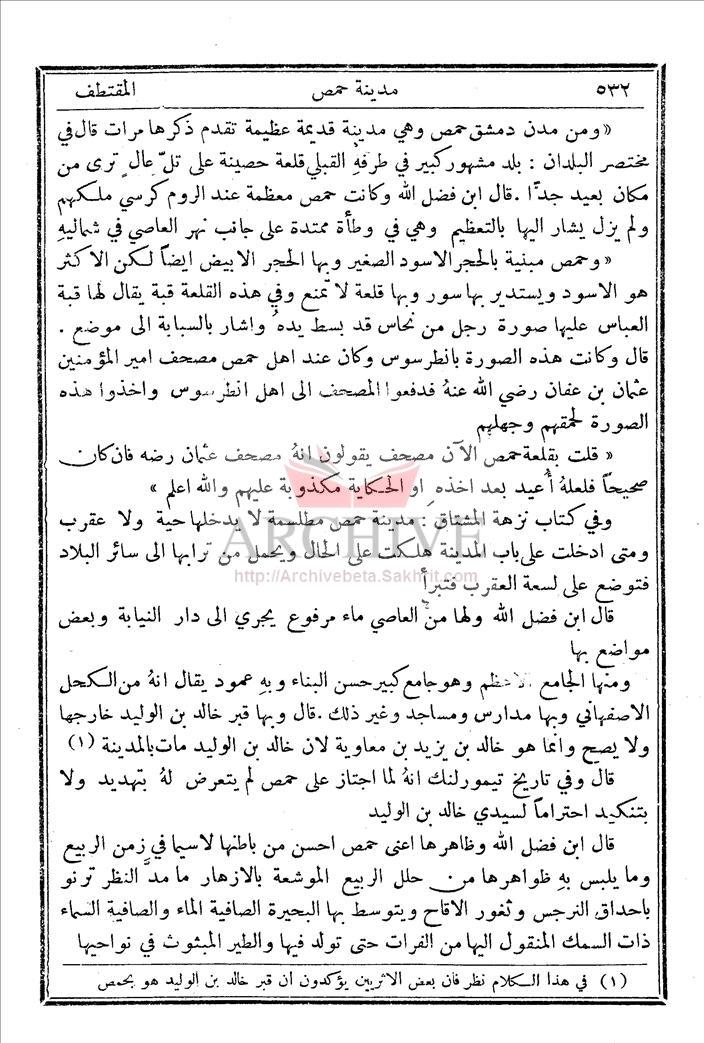 ٥٣٢ مدينة حمص المقتطف
«ومن مدن دمشق حمص وهي مدينة قديمة عظيمة تقدم ذكرها مرات قال في
مختصر البلدان : بلد مشهور كبير في طرفهِ القبلي قلعة حصينة على تلّ عالٍ ترى من
مكان بعيد جدًّا . قال ابن فضل الله وكانت حمص معظمة عند الروم كرسي ملكهم
ولم يزل يشار اليها بالتعظيم وهي في وطأة ممتدة على جانب نهر العاصي في شماليهِ
«وحمص مبنية بالحجر الاسود الصغير وبها الحجر الابيض ايضاً لكن الاكثر
هو الاسود ويستدير بها سور وبها قلعة لا تمنع وفي هذه القلعة قبة يقال لها قبة
العباس عليها صورة رجل من نحاس قد بسط يدهُ واشار بالسبابة الى موضع .
قال وكانت هذه الصورة بانطرسوس وكان عند اهل حمص مصحف امير المؤمنين
عثمان بن عفان رضي الله عنهُ فدفعوا المصحف الى اهل انطرسوس واخذوا هذه
الصورة لحمقهم وجهلهم
« قلت بقلعة حمص الآن مصحف يقولون انهُ مصحف عثمان رضه فان كان
صحيحاً فلعلهُ أُعيد بعد اخذهِ او الحكاية مكذوبة عليهم والله اعلم »
ARCHIVE
وفي كتاب نزهة المشتاق : مدينة حمص مطلسمة لا يدخلها حية ولا عقرب
ومتى ادخلت على باب المدينة هلكت على الحال ويحمل من ترابها الى سائر البلاد
http://Archivebeta.Sakhrit.com
فتوضع على لسعة العقرب فتبرأ
قال ابن فضل الله ولها من العاصي ماء مرفوع يجري الى دار النيابة وبعض
مواضع بها
ومنها الجامع الاعظم وهو جامع كبير حسن البناء وبهِ عمود يقال انهُ من الكحل
الاصفهاني وبها مدارس ومساجد وغير ذلك . قال وبها قبر خالد بن الوليد خارجها
ولا يصح وانما هو خالد بن يزيد بن معاوية لان خالد بن الوليد مات بالمدينة (١)
قال وفي تاريخ تيمورلنك انهُ لما اجتاز على حمص لم يتعرض لهُ بتهديد ولا
بتنكيد احتراماً لسيدي خالد بن الوليد
قال ابن فضل الله وظاهرها اعنى حمص احسن من باطنها لاسيما في زمن الربيع
وما يلبس بهِ ظواهرها من حلل الربيع الموشعة بالازهار ما مدَّ النظر ترنو
باحداق النرجس وثغور الاقاح ويتوسط بها البحيرة الصافية الماء والصافية السماء
ذات السمك المنقول اليها من الفرات حتى تولد فيها والطير المبثوث في نواحيها
(١) في هذا الكلام نظر فان بعض الاثريين يؤكدون ان قبر خالد بن الوليد هو بحمص